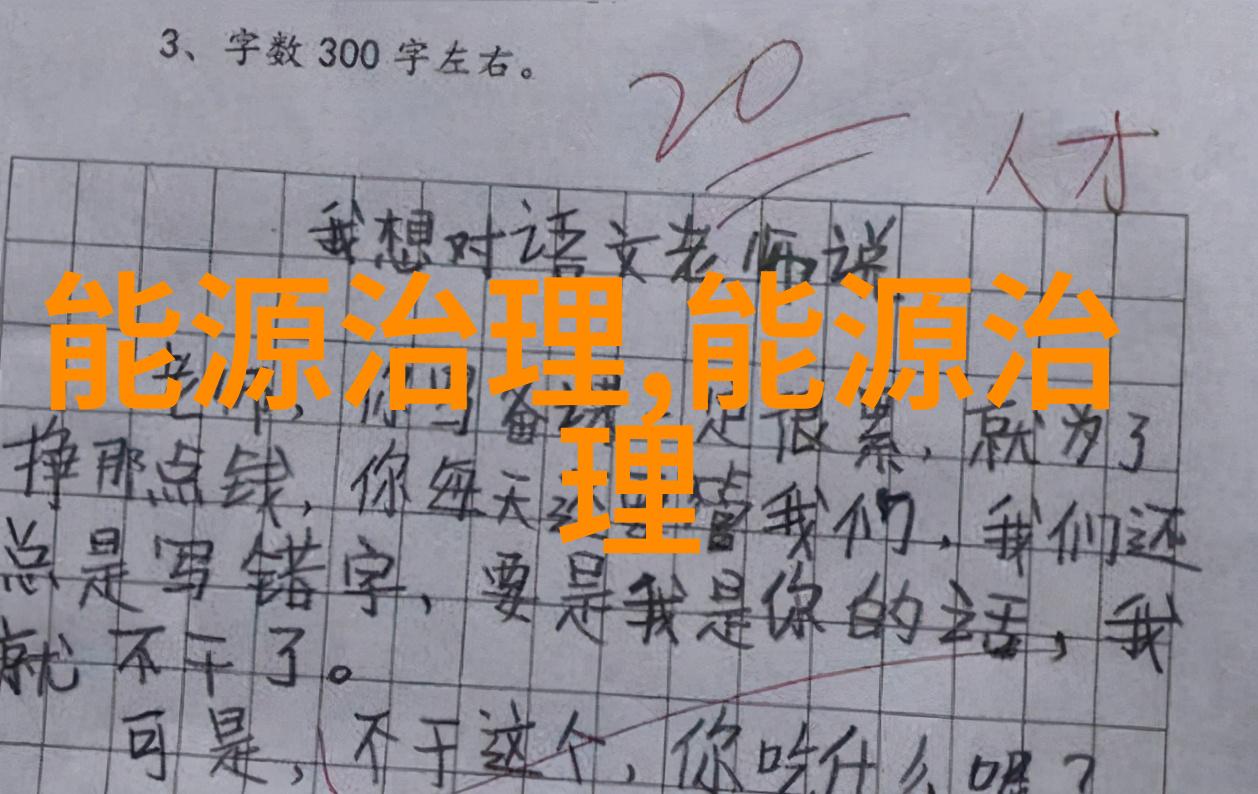 3、字数 300 字左右。
20
人才
我想对语文老师说
能源治理,能源治
理
老师，你写备课，是很累，就为了
挣那点钱，你每天还管我们，我们还
总是写错字，要是我是你的话，我
就不干了。
可是，不干这个，你吃什么呢？